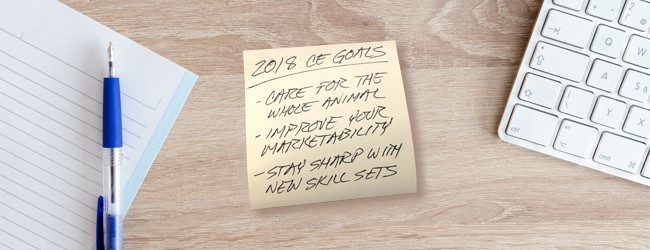 2018 CE GOALS
- CARE FOR THE
WHOLE ANIMAL
- IMPROVE YOUR
MARKETABILITY
- STAY SHARP WITH
NEW SKILL SETS
Q
W
A
S
Z
X
ctrl
alt
cmd